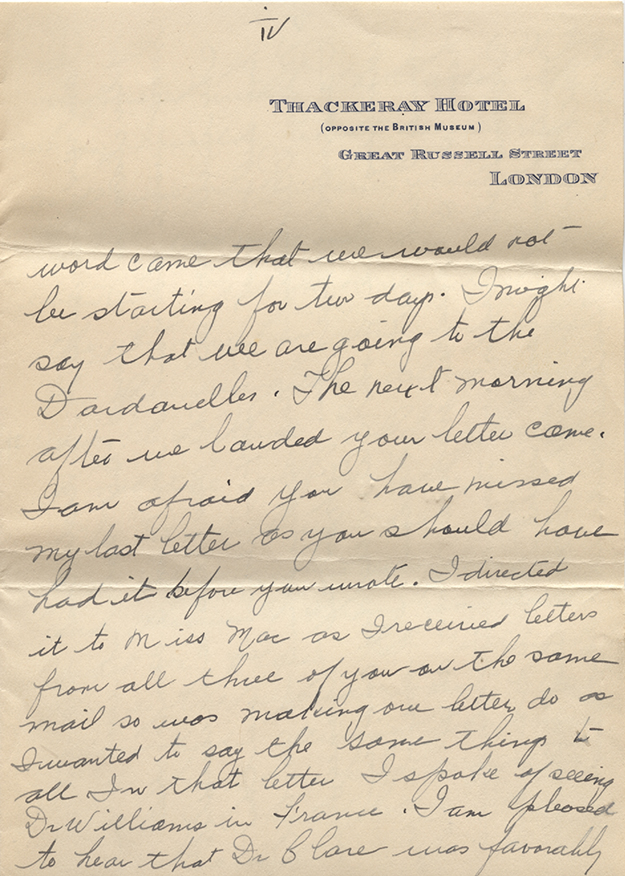 IV
THACKERAY HOTEL
(OPPOSITE THE BRITISH MUSEUM)
GREAT RUSSELL STREET
LONDON
word came that we would not
be starting for two days. I might
say that we are going to the
Dardanelles. The next morning
after we landed your letter came.
I am afraid you have missed
my last letter as you should have
had it before you wrote. I directed
it to Miss Mac as I received letters
from all three of you on the same
mail so was making one letter do as
I wanted to say the same things to
all In that letter I spoke of seeing
Dr Williams in France. I am pleased
to hear that Dr Clare was favorably